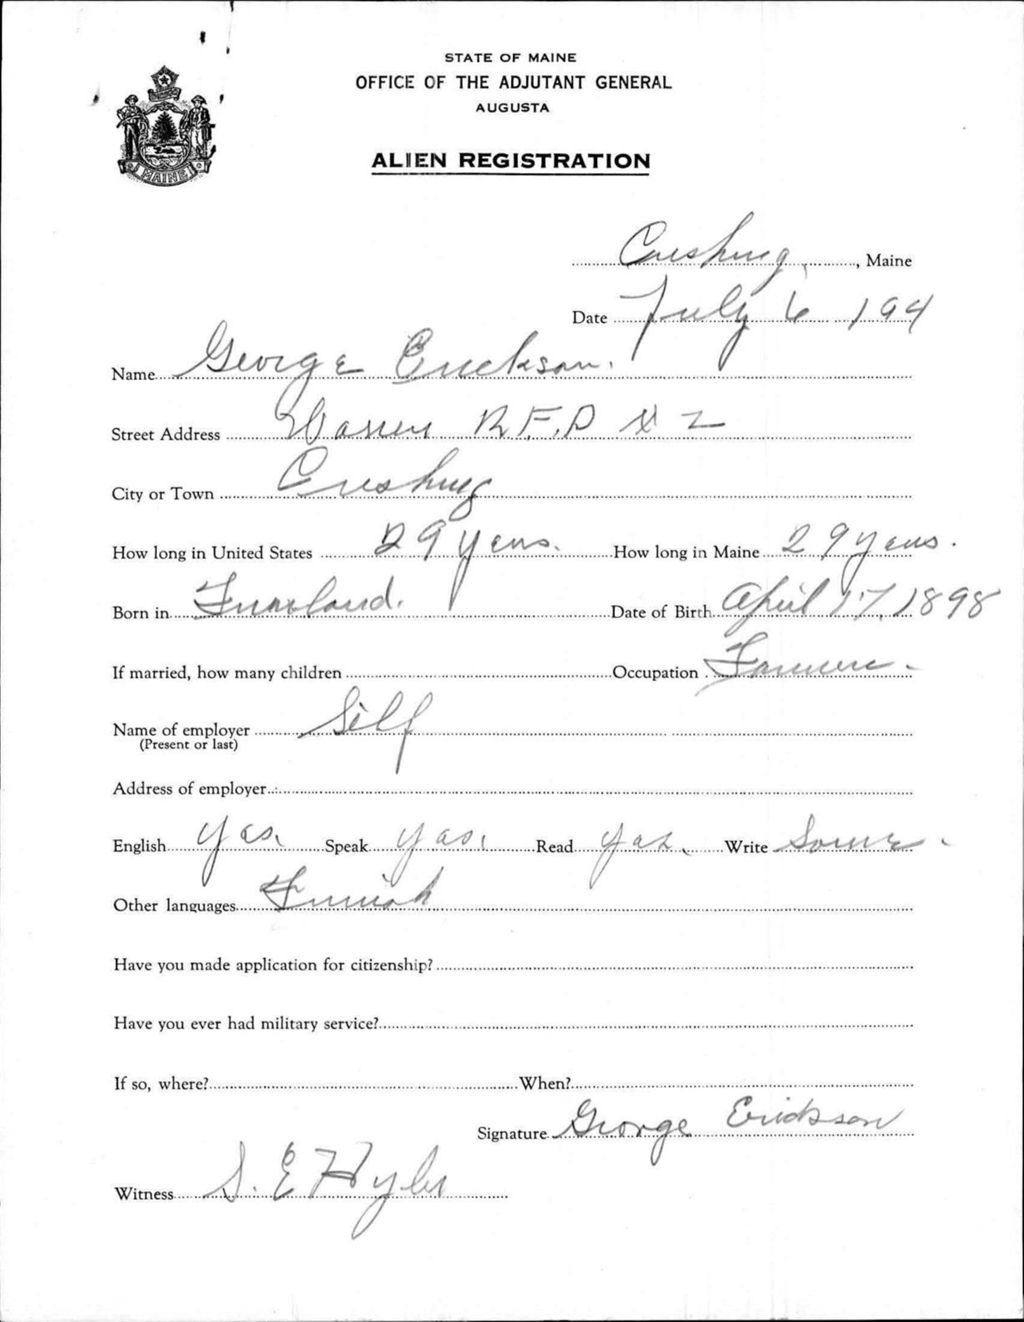 STATE OF MAINE
OFFICE OF THE ADJUTANT GENERAL
AUGUSTA
ALIEN REGISTRATION
MAINE
Cushing, Maine
Date July 6 194
Name George Erickson.
Street Address Warren R.F.D # 2
City or Town Cushing
How long in United States 29 years. How long in Maine 29 years.
Born in Finland. Date of Birth April 17, 1898
If married, how many children Occupation Farmer
Name of employer Self
(Present or last)
Address of employer
English Yes. Speak Yes. Read Yes. Write Some
Other languages Finnish
Have you made application for citizenship?
Have you ever had military service?
If so, where? When?
Signature George Erickson
Witness S. E Hyler